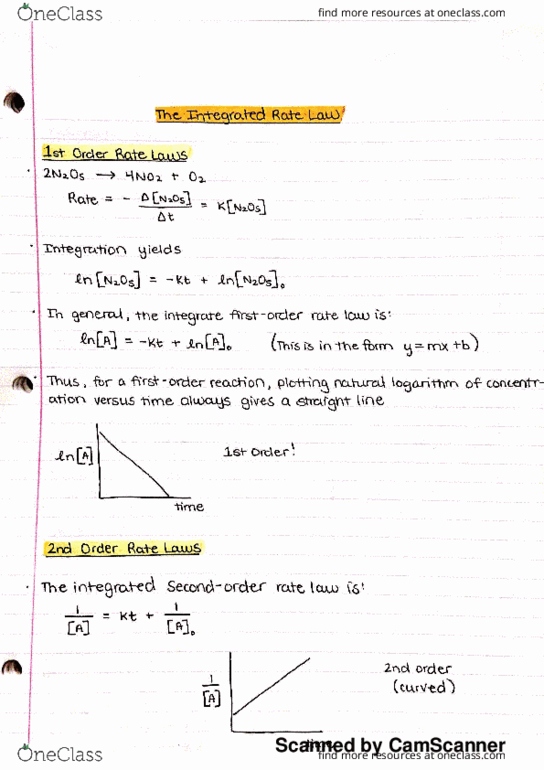 OneClass
find more resources at oneclass.com
The Integrated Rate Law
1st Order Rate Laws
· 2N₂O₅ → 4NO₂ + O₂
Rate = - Δ[N₂O₅]/Δt = K[N₂O₅]
· Integration yields
ln[N₂O₅] = -Kt + ln[N₂O₅]₀
· In general, the integrate first-order rate law is:
ln[A] = -Kt + ln[A]₀ (This is in the form y=mx+b)
· Thus, for a first-order reaction, plotting natural logarithm of concentr-
ation versus time always gives a straight line
ln[A]
1st order!
time
2nd Order Rate Laws
· The integrated second-order rate law is:
1/[A] = Kt + 1/[A]₀
1/[A]
2nd order
(curved)
Scanned by CamScanner
OneClass
find more resources at oneclass.com